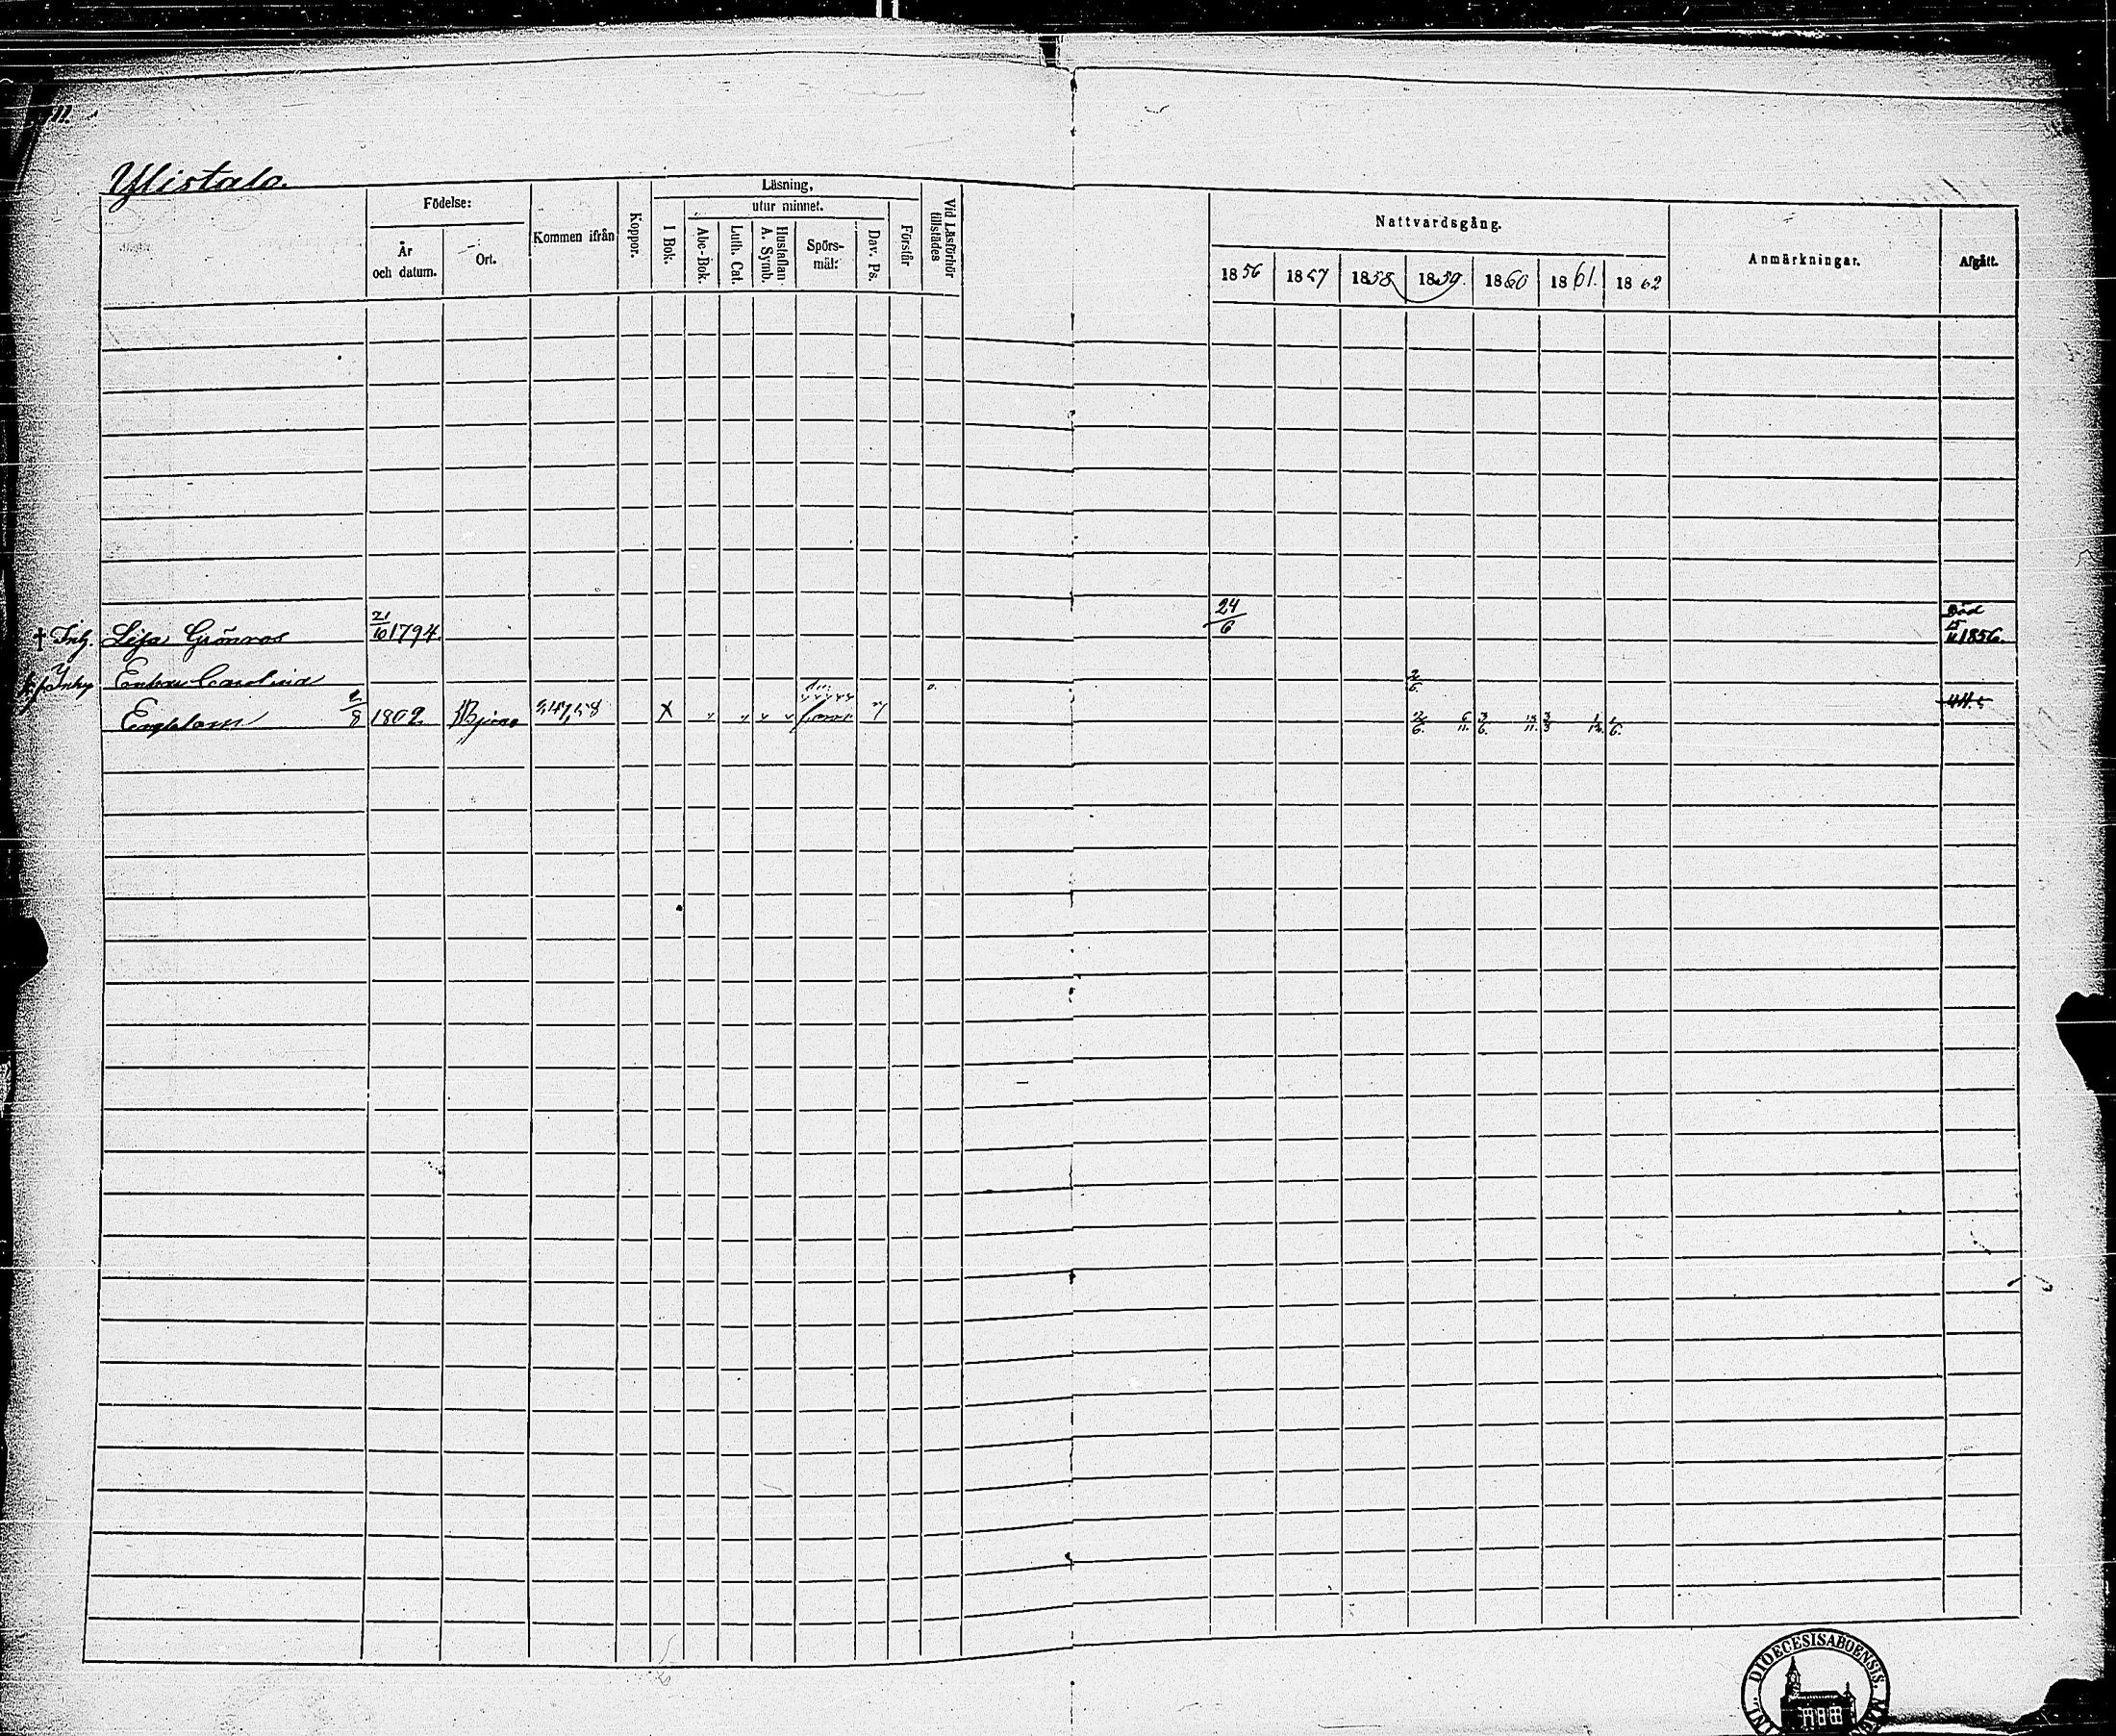 Ylistalo.
Födelse:
År och datum.
Ort.
Kommen ifrån
Koppor.
Läsning,
I Bok.
utur minnet.
Abc-Bok.
Luth. Cat.
Hustaflan A. Symb.
Spörs-mål:
Dav. Ps.
Förstår
Vid Läsförhör tillstädes
Nattvardsgång.
1856 1857 1858 1859. 1860 1861. 1862
Anmärkningar.
Afgått.
† Inh. Lisa Grönroos 21/10 1794. 24/6 Död 15/11 1856.
Inhy Enkan Carolina 2/6.
Englblom 8 1802. Bjerno X 2/6. 6/11. 3/6. 11. 3/3 1/12. 6.
DIOECESISABOENSIS.